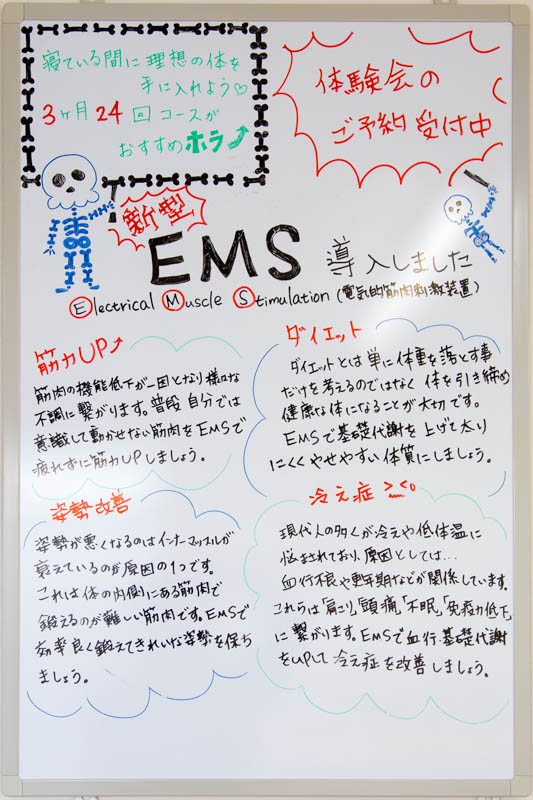 寝ている間に理想の体を
手に入れよう♡
3ヶ月24回コースが
おすすめホラ
体験会の
ご予約受付中
新型
EMS 導入しました
Electrical Muscle Stimulation (電気的筋肉刺激装置)
筋力UP↑
筋肉の機能低下が一因となり様々な
不調に繋がります。普段自分では
意識して動かせない筋肉をEMSで
疲れずに筋力UPしましょう。
ダイエット
ダイエットとは単に体重を落とす事
だけを考えるのではなく体を引き締め
健康な体になることが大切です。
EMSで基礎代謝を上げて太り
にくくやせやすい体質にしましょう。
姿勢改善
姿勢が悪くなるのはインナーマッスルが
衰えているのが原因の1つです。
これは体の内側にある筋肉で
鍛えるのが難しい筋肉です。EMSで
効率良く鍛えてきれいな姿勢を保ち
ましょう。
冷え症
現代人の多くが冷えや低体温に
悩まされており、原因としては…
血行不良や更年期などが関係しています。
これらは「肩こり」「頭痛」「不眠」「免疫力低下」
に繋がります。EMSで血行・基礎代謝
をUPして冷え症を改善しましょう。